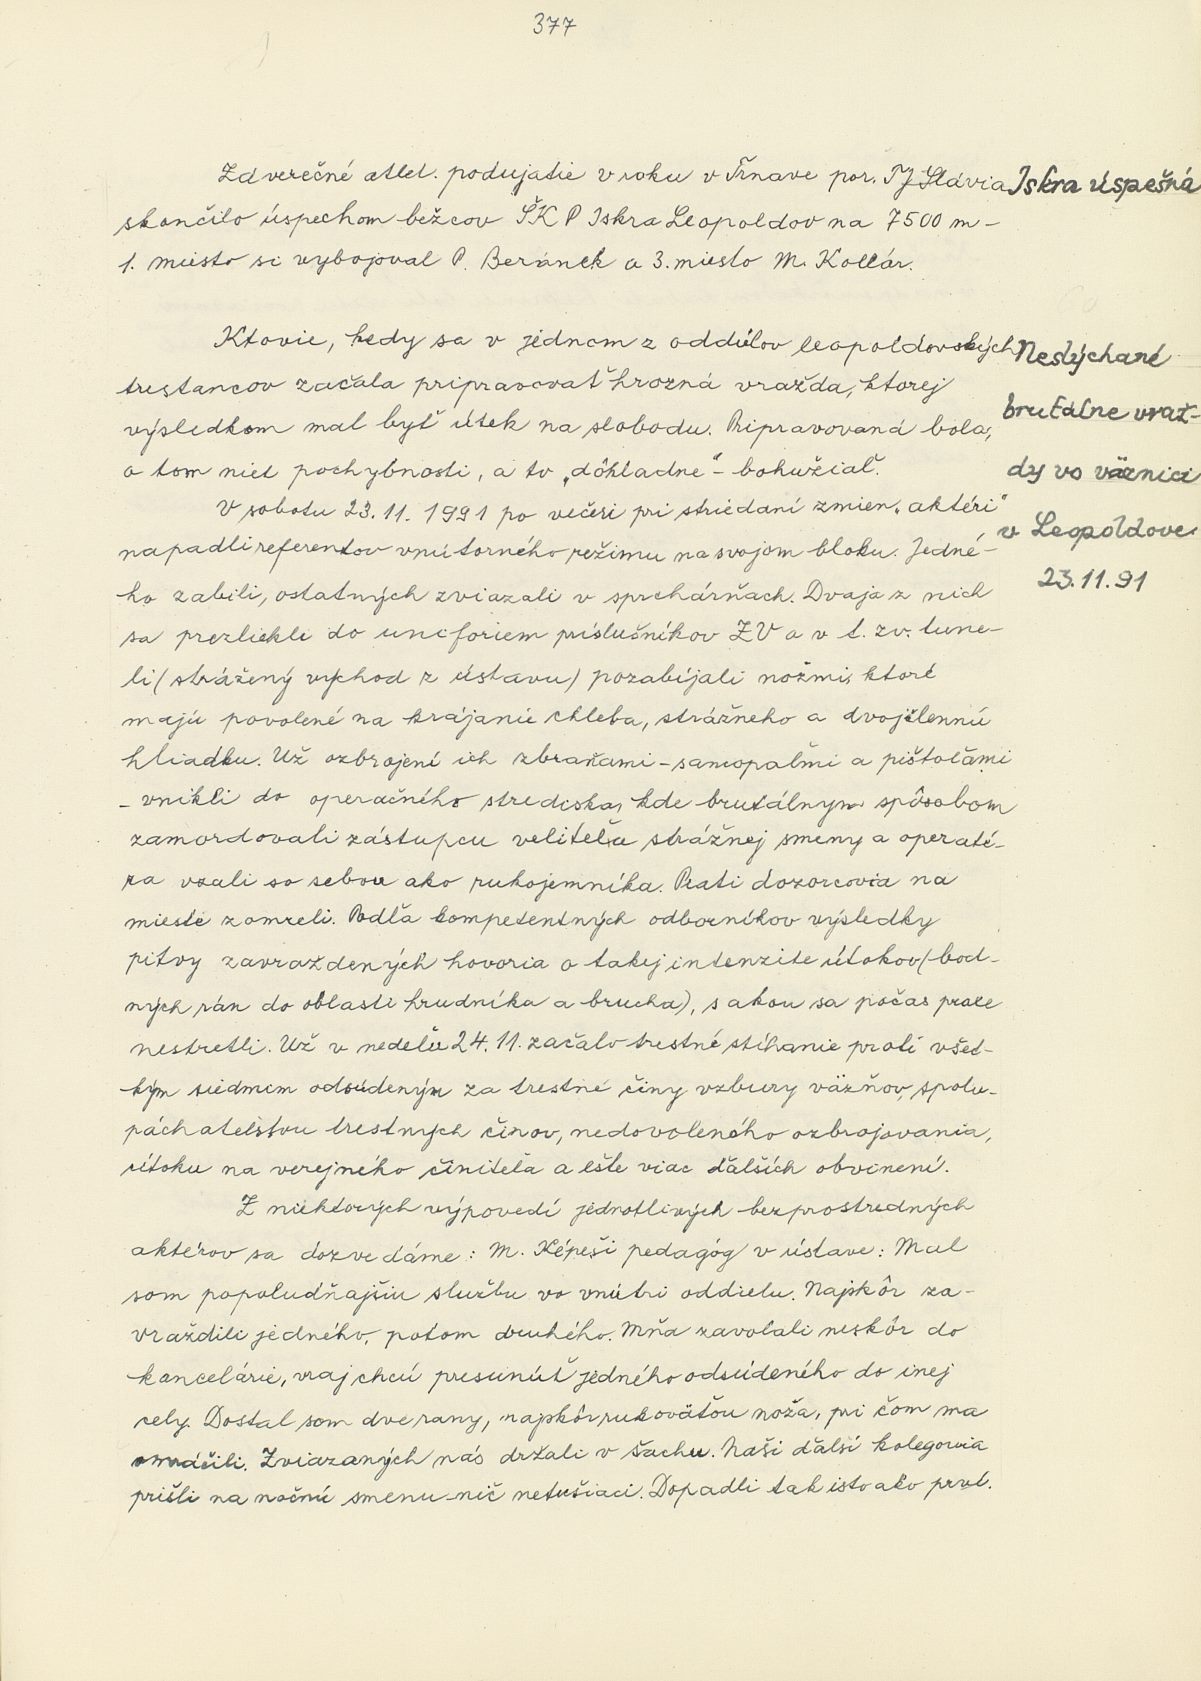 377
Záverečné atlet. podujatie v roku v Trnave por. TJ Slávia
Iskra úspešná
skončilo úspechom bežcov ŠK P Iskra Leopoldov na 7500 m -
1. miesto si vybojoval P. Beránek a 3. miesto M. Kollár.
Ktovie, kedy sa v jednom z oddielov leopoldovských
Neslýchané
trestancov začala pripravovať hrozná vražda, ktorej
brutálne vraž-
výsledkom mal byť útek na slobodu. Pripravovaná bola,
o tom niet pochybnosti, a to „dôkladne“ - bohužiaľ.
dy vo väznici
V sobotu 23.11. 1991 po večeri pri striedaní zmien „aktéri“
v Leopoldove
napadli referentov vnútorného režimu na svojom bloku. Jedné-
23.11.91
ho zabili, ostatných zviazali v sprchárňach. Dvaja z nich
sa prezliekli do uniforiem príslušníkov ZV a v t. zv. tune-
li (strážený východ z ústavu) pozabíjali nožmi, ktoré
majú povolené na krájanie chleba, strážneho a dvojčlennú
hliadku. Už ozbrojení ich zbraňami - samopaľmi a pištoľami
- vnikli do operačného strediska, kde brutálnym spôsobom
zamordovali zástupcu veliteľa strážnej smeny a operaté-
ra vzali so sebou ako rukojemníka. Piati dozorcovia na
mieste zomreli. Podľa kompetentných odborníkov výsledky
pitvy zavraždených hovoria o takej intenzite útokov (bod-
ných rán do oblasti hrudníka a brucha), s akou sa počas praxe
nestretli. Už v nedeľu 24. 11. začalo trestné stíhanie proti všet-
kým siedmim odsúdeným za trestné činy vzbury väzňov, spolu-
páchateľstvu trestných činov, nedovoleného ozbrojovania,
útoku na verejného činiteľa a ešte viac ďalších obvinení.
Z niektorých výpovedí jednotlivých bezprostredných
aktérov sa dozvedáme: M. Képeši pedagóg v ústave: Mal
som popoludňajšiu službu vo vnútri oddielu. Najskôr za-
vraždili jedného, potom druhého. Mňa zavolali neskôr do
kancelárie, vraj chcú presunúť jedného odsúdeného do inej
cely. Dostal som dve rany, najskôr rukoväťou noža, pri čom ma
omráčili. Zviazaných nás držali v šachu. Naši ďalší kolegovia
prišli na nočnú smenu nič netušiaci. Dopadli tak isto ako prví.